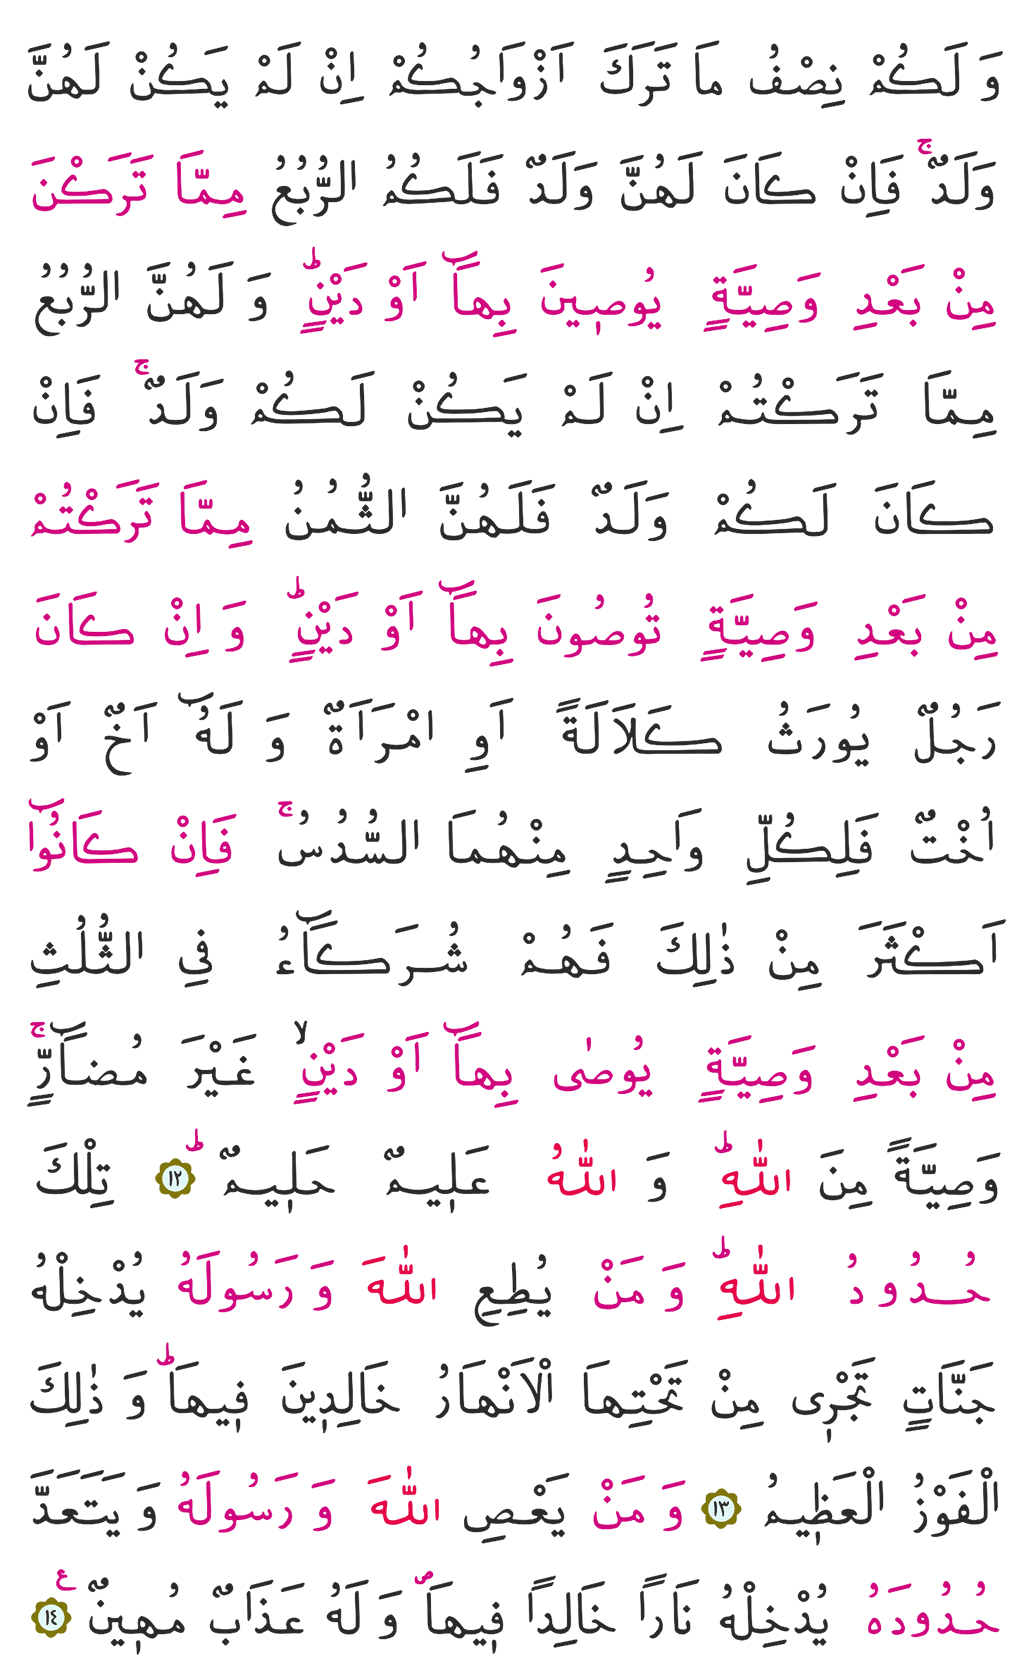 وَ لَكُمْ نِصْفُ مَا تَرَكَ اَزْوَاجُكُمْ اِنْ لَمْ يَكُنْ لَهُنَّ
وَلَدٌۚ فَاِنْ كَانَ لَهُنَّ وَلَدٌ فَلَكُمُ الرُّبُعُ مِمَّا تَرَكْنَ
مِنْ بَعْدِ وَصِيَّةٍ يُوص۪ينَ بِهَٓا اَوْ دَيْنٍۜ وَ لَهُنَّ الرُّبُعُ
مِمَّا تَرَكْتُمْ اِنْ لَمْ يَكُنْ لَكُمْ وَلَدٌۚ فَاِنْ
كَانَ لَكُمْ وَلَدٌ فَلَهُنَّ الثُّمُنُ مِمَّا تَرَكْتُمْ
مِنْ بَعْدِ وَصِيَّةٍ تُوصُونَ بِهَٓا اَوْ دَيْنٍۜ وَ اِنْ كَانَ
رَجُلٌ يُورَثُ كَلَالَةً اَوِ امْرَاَةٌ وَ لَهُٓ اَخٌ اَوْ
اُخْتٌ فَلِكُلِّ وَاحِدٍ مِنْهُمَا السُّدُسُۚ فَاِنْ كَانُٓوا
اَكْثَرَ مِنْ ذٰلِكَ فَهُمْ شُرَكَٓاءُ فِي الثُّلُثِ
مِنْ بَعْدِ وَصِيَّةٍ يُوصٰى بِهَٓا اَوْ دَيْنٍۙ غَيْرَ مُضَٓارٍّۚ
وَصِيَّةً مِنَ اللّٰهِۜ وَ اللّٰهُ عَل۪يمٌ حَل۪يمٌۜ ١٢ تِلْكَ
حُدُودُ اللّٰهِۜ وَ مَنْ يُطِعِ اللّٰهَ وَ رَسُولَهُ يُدْخِلْهُ
جَنَّاتٍ تَجْر۪ى مِنْ تَحْتِهَا الْاَنْهَارُ خَالِد۪ينَ ف۪يهَاۜ وَ ذٰلِكَ
الْفَوْزُ الْعَظ۪يمُ ١٣ وَ مَنْ يَعْصِ اللّٰهَ وَ رَسُولَهُ وَ يَتَعَدَّ
حُدُودَهُ يُدْخِلْهُ نَاراً خَالِداً ف۪يهَاۖ وَ لَهُ عَذَابٌ مُه۪ينٌ ١٤ ع